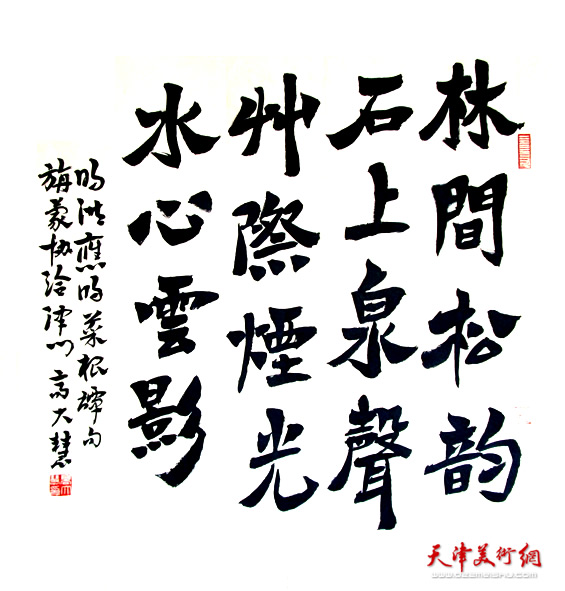 林間松韵
石上泉聲
艸際煙光
水心雲影
明洪應明菜根譚句
旃蒙協洽津門高大慧
天津美術網